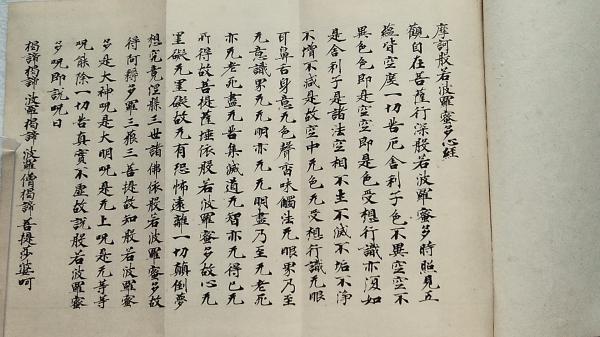 摩訶般若波羅蜜多心經
觀自在菩薩行深般若波羅蜜多時照見五
蘊皆空度一切苦厄舍利子色不異空空不
異色色即是空空即是色受想行識亦復如
是舍利子是諸法空相不生不滅不垢不淨
不增不減是故空中无色无受想行識无眼
耳鼻舌身意无色聲香味觸法无眼界乃至
无意識界无无明亦无无明盡乃至无老死
亦无老死盡无苦集滅道无智亦无得已无
所得故菩提薩埵依般若波羅蜜多故心无
罣礙无罣礙故无有恐怖遠離一切顛倒夢
想究竟涅槃三世諸佛依般若波羅蜜多故
得阿耨多羅三藐三菩提故知般若波羅蜜
多是大神呪是大明呪是无上呪是无等等
呪能除一切苦真實不虛故說般若波羅蜜
多呪即說呪曰
揭諦揭諦 波羅揭諦 波羅僧揭諦 菩提莎婆呵